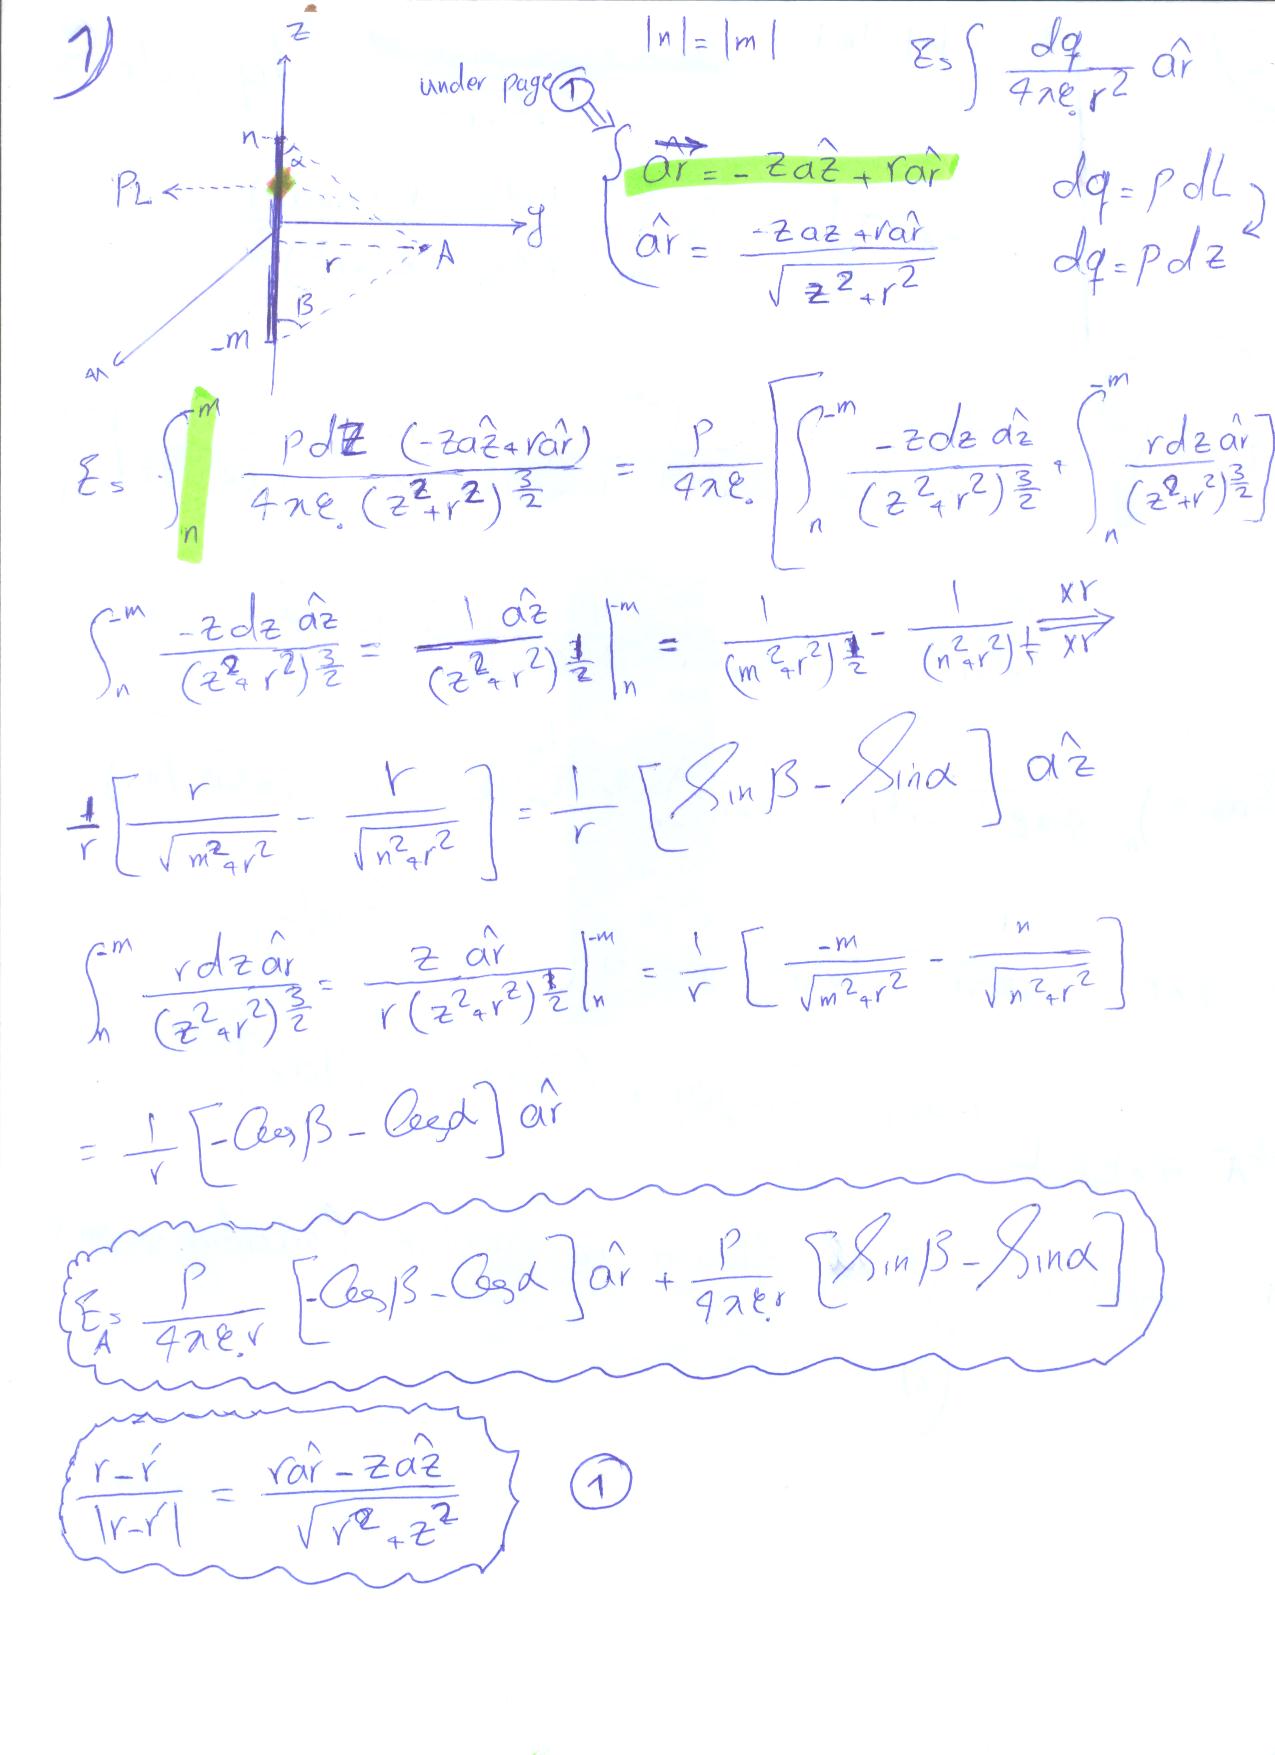 1)
|n| = |m|
E = ∫ dq / 4πε₀r² âr
under page ①
z
n
α
PL
y
r
A
B
-m
x
ar⃗ = - z âz + r âr
âr = -z az + r âr / √(z² + r²)
dq = ρ dL
dq = ρ dz
E = ∫_n^-m ρ dz (-z âz + r âr) / 4πε₀ (z² + r²)^3/2 = ρ / 4πε₀ [ ∫_n^-m -z dz âz / (z² + r²)^3/2 + ∫_n^-m r dz âr / (z² + r²)^3/2 ]
∫_n^-m -z dz âz / (z² + r²)^3/2 = 1 âz / (z² + r²)^1/2 |_n^-m = 1 / (m² + r²)^1/2 - 1 / (n² + r²)^1/2 ⇒ xr / xr
1/r [ r / √(m² + r²) - r / √(n² + r²) ] = 1/r [ Sin β - Sin α ] âz
∫_n^-m r dz âr / (z² + r²)^3/2 = z âr / r (z² + r²)^1/2 |_n^-m = 1/r [ -m / √(m² + r²) - n / √(n² + r²) ]
= 1/r [ -Cos β - Cos α ] âr
E_A = ρ / 4πε₀r [ -Cos β - Cos α ] âr + ρ / 4πε₀r [ Sin β - Sin α ]
r - r' / |r - r'| = r âr - z âz / √(r² + z²)
①